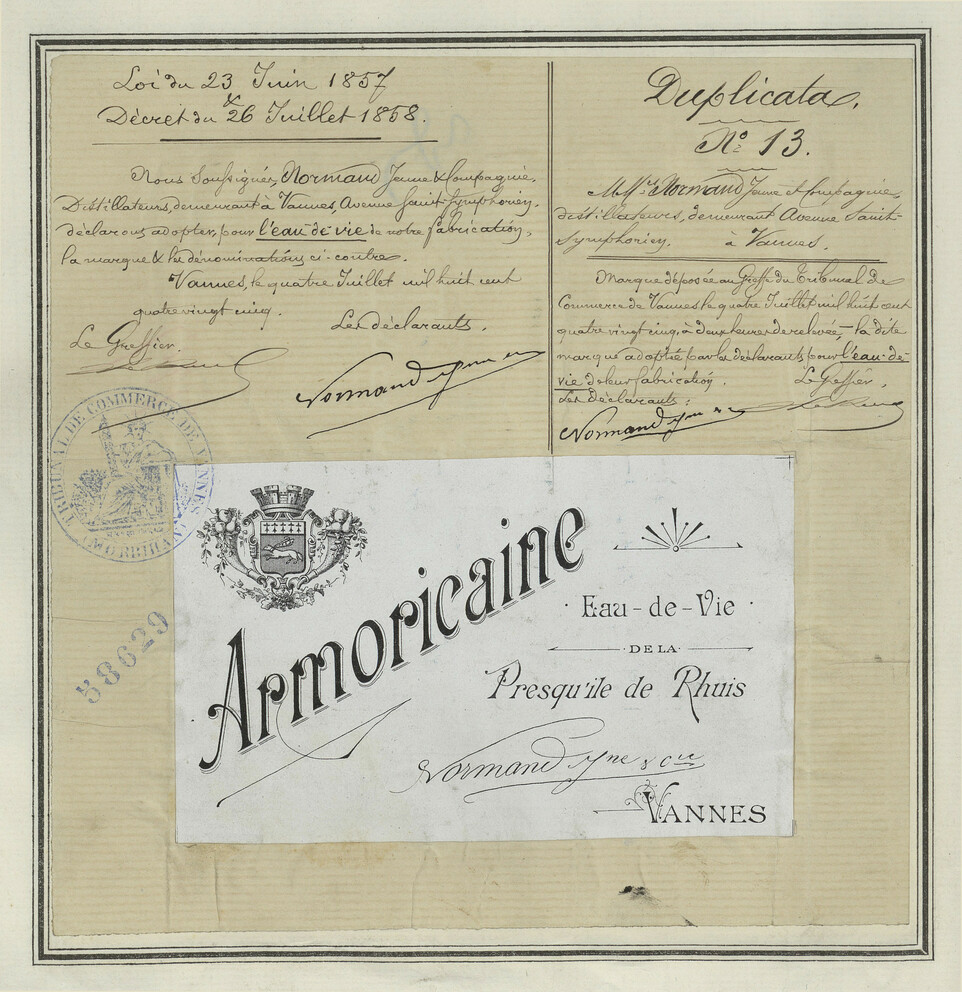 Loi du 23 Juin 1857
Décret du 26 Juillet 1858.
Nous Soussignés, Normand Jeune & Compagnie,
Distillateurs, demeurant à Vannes, Avenue Saint-Symphorien,
déclarons adopter, pour l'eau de vie de notre fabrication,
la marque & les dénominations ci-contre.
Vannes, le quatre Juillet mil huit cent
quatre vingt cinq.
Les déclarants.
Le Greffier.
Normand Jne
TRIBUNAL DE COMMERCE DE VANNES
(MORBIHAN)
58629
Duplicata.
No 13.
MMrs Normand Jeune et Compagnie,
distillateurs, demeurant Avenue Saint-
Symphorien, à Vannes.
Marque déposée au Greffe du Tribunal de
Commerce de Vannes le quatre Juillet mil huit cent
quatre vingt cinq, à deux heures de relevée, la dite
marque adoptée par les déclarants pour l'eau-de-
vie de leur fabrication.
Le Greffier.
Les déclarants:
Normand Jne
Armoricaine
Eau-de-Vie
DE LA
Presqu'ile de Rhuis
Normand Jne & Cie
VANNES